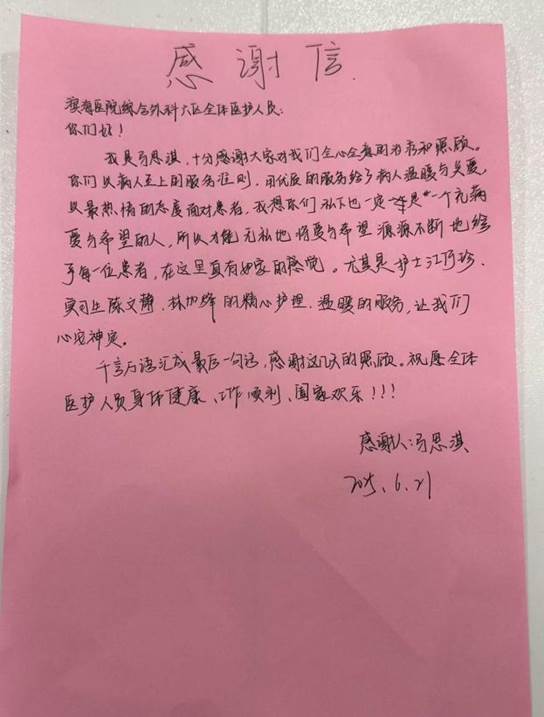 感谢信.
滨海医院综合外科六区全体医护人员:
你们好!
我是冯思淇,十分感谢大家对我们全心全意的治疗和照顾。
你们以病人至上的服务准则,用优质的服务给予病人温暖与关爱,
以最热情的态度面对患者,我想你们私下也一定一定是一个充满
爱与希望的人,所以才能无私地将爱与希望源源不断地给
予每一位患者,在这里真有如家的感觉。尤其是护士江阿珍.
实习生陈文静.林加烽的精心护理.温暖的服务,让我们
心安神定。
千言万语汇成最后一句话,感谢这几天的照顾。祝愿全体
医护人员身体健康、工作顺利、阖家欢乐!!!
感谢人:冯思淇
2025.6.21